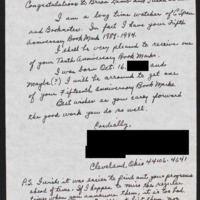 Congratulations to Brian Lamb and
I am a long time watcher of C-Span
and Booknotes. In fact I have your Fifth
Anniversary Book Mark 1989-1994.
I shall be very pleased to receive one
of your Tenth Anniversary Book Marks.
I was born Oct. 16, and
Maybe(?) I will be around to get one
of your Fifteenth Anniversary Book Marks
Best wishes as you carry forward
the good work you do so well.
Cordially,
Cleveland, Ohio 44106-4641
P.S. I wish it was easier to find out your programs
ahead of time. If I happen to miss the regular
times when you announce them,